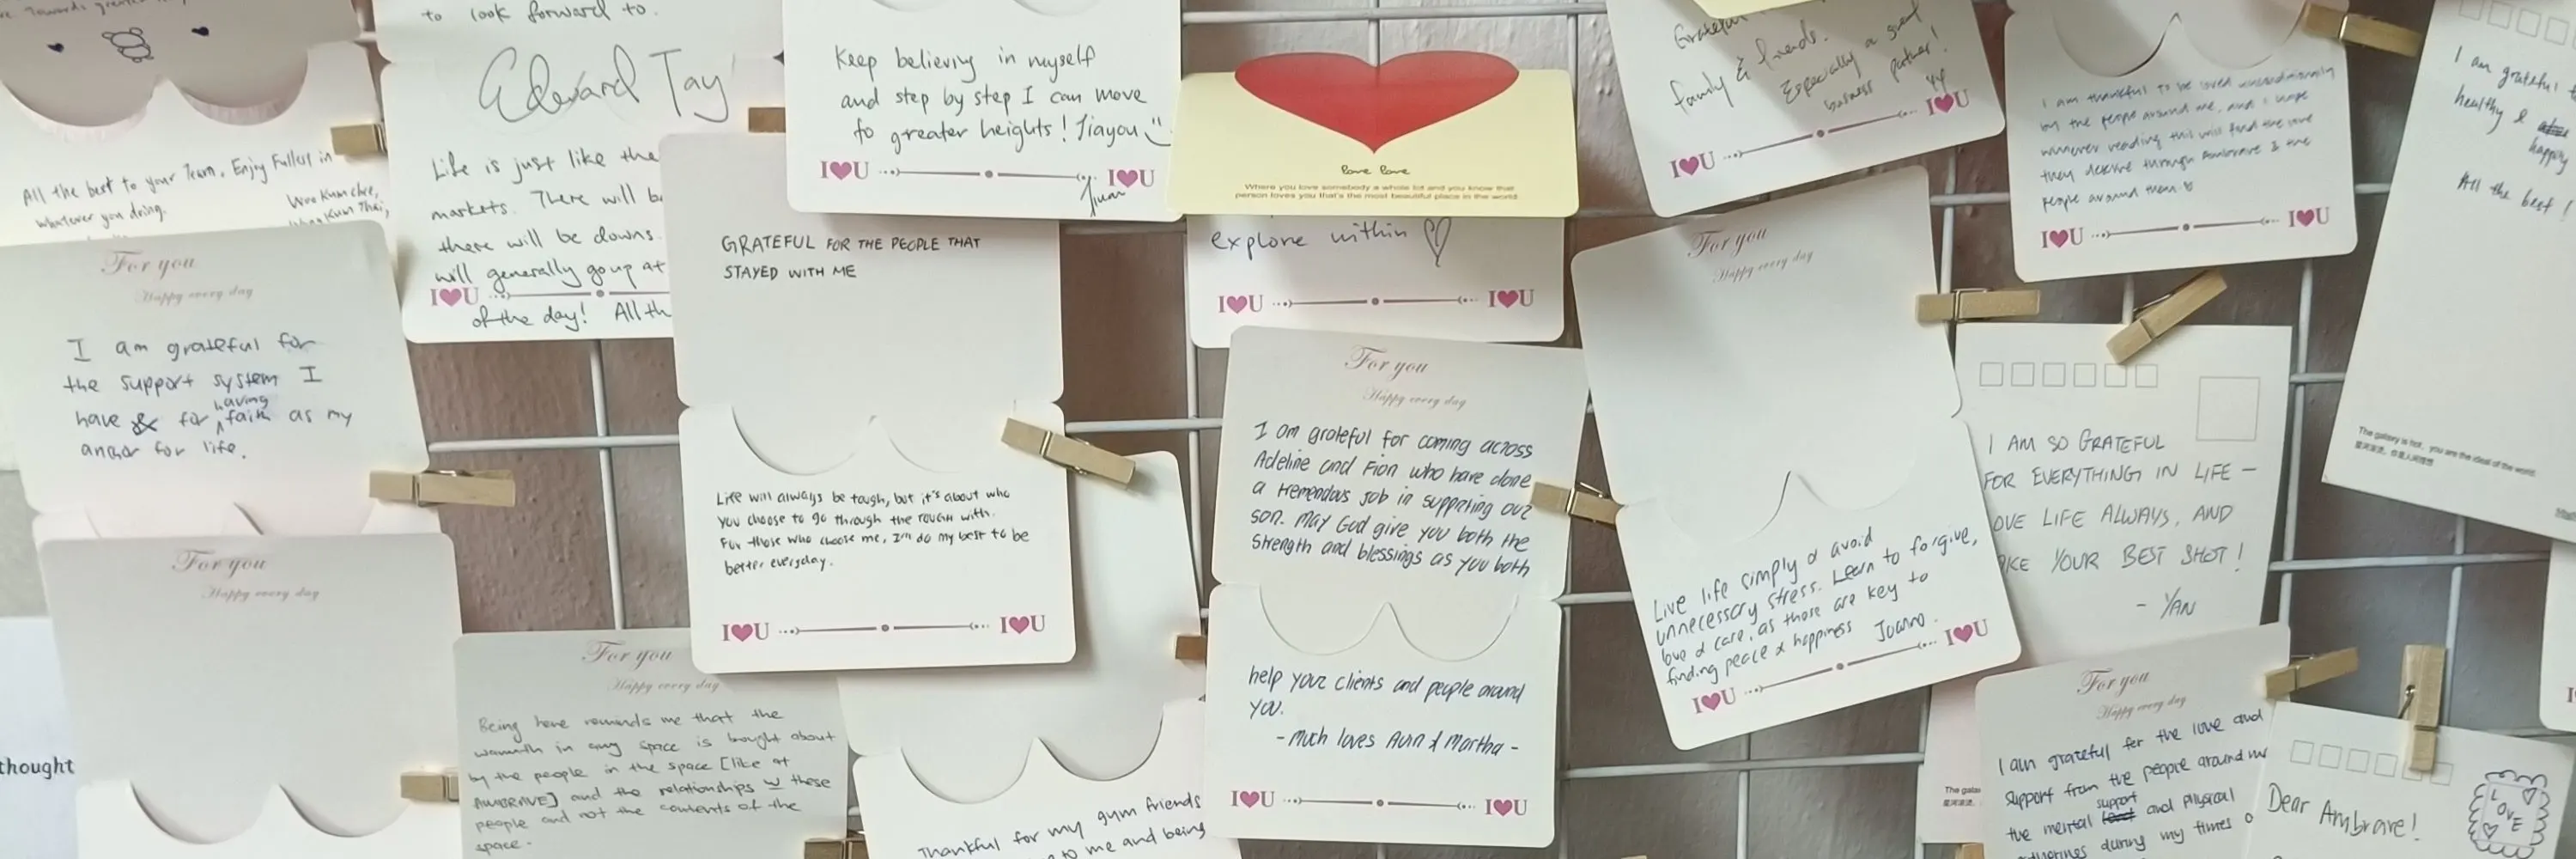 to look forward to.
Edward Tay
Life is just like the
markets. There will b
there will be downs.
will generally go up at
I♥U
of the day! All th
All the best to your Team. Enjoy Fullest in
whatever you doing.
Woo Kum Chee,
For you
Happy every day
I am grateful for
the support system I
have & for having faith as my
anchor for life.
For you
Happy every day
thought
Keep believing in myself
and step by step I can move
to greater heights! Jiayou
I♥U I♥U
GRATEFUL FOR THE PEOPLE THAT
STAYED WITH ME
Life will always be tough, but it's about who
you choose to go through the rough with.
For those who choose me, I'll do my best to be
better everyday.
I♥U I♥U
For you
Happy every day
Being here reminds me that the
warmth in any space is bought about
by the people in the space [like at
AMBRAVE] and the relationships w these
people and not the contents of the
space.
Thankful for my gym friends
to me and being
love love
Where you love somebody a whole lot and you know that
person loves you that's the most beautiful place in the world.
explore within
I♥U I♥U
For you
Happy every day
I am grateful for coming across
Adeline and Fion who have done
a tremendous job in supporting our
son. May God give you both the
strength and blessings as you both
help your clients and people around
you.
- Much loves Alvin & Martha -
I♥U I♥U
Grateful
family & friends.
Especially a great
business partner!
I♥U I♥U
For you
Happy every day
Live life simply & avoid
unnecessary stress. Learn to forgive,
love & care, as those are key to
finding peace & happiness Joanno.
I♥U I♥U
I am thankful to be loved unconditionally
by the people around me, and I hope
whoever reading this will find the love
they deserve through Ambrave & the
people around them
I♥U I♥U
I AM SO GRATEFUL
FOR EVERYTHING IN LIFE -
OVE LIFE ALWAYS, AND
AKE YOUR BEST SHOT!
- YAN
I am grateful t
healthy &
happy
All the best!
The galaxy is hot, you are the ideal of the world.
星河滚烫，你是人间理想
The galax
For you
Happy every day
I am grateful for the love and
support from the people around me
the mental support and physical
during my times o
Dear Ambrave!
LOVE